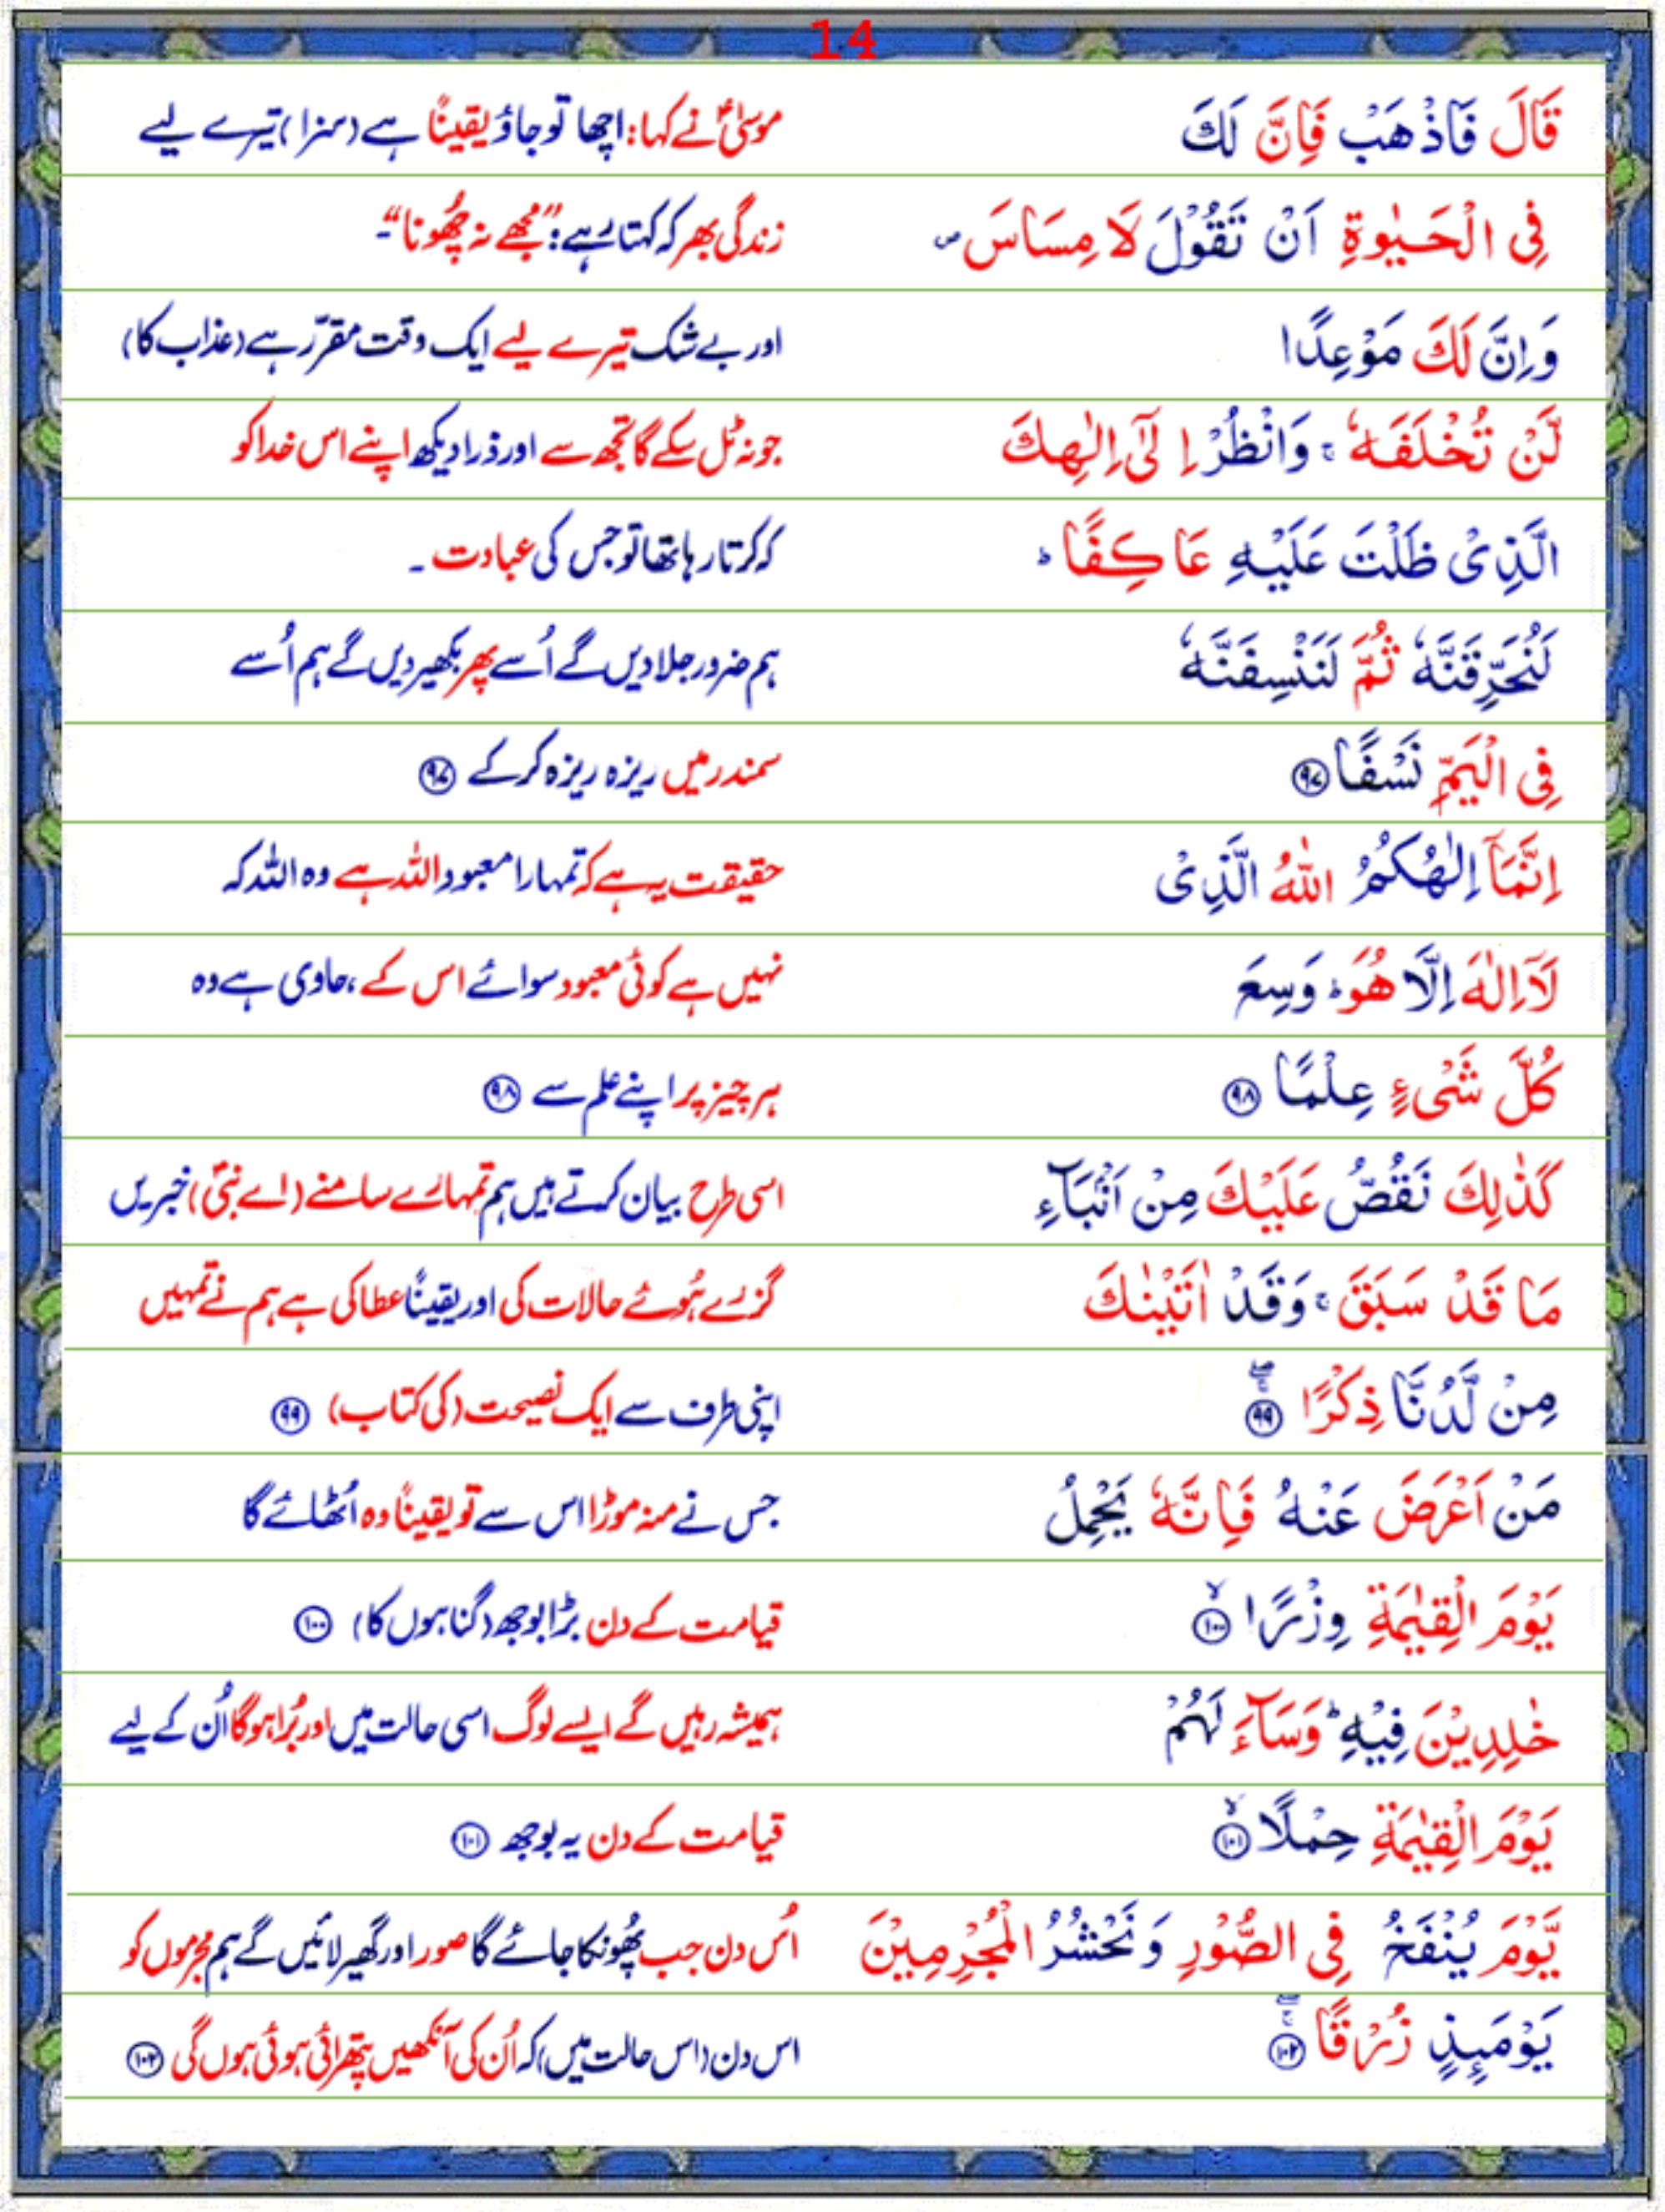 14
قَالَ فَاذْهَبْ فَاِنَّ لَكَ موسیٰؑ نے کہا: اچھا تو جاؤ یقیناً ہے (سزا) تیرے لیے
فِی الْحَیٰوةِ اَنْ تَقُوْلَ لَا مِسَاسَ ۪ زندگی بھر کہ کہتا رہے: ”مجھے نہ چُھونا“۔
وَاِنَّ لَكَ مَوْعِدًا اور بے شک تیرے لیے ایک وقت مقرّر ہے (عذاب کا)
لَّنْ تُخْلَفَهٗ ۚ وَانْظُرْ اِلٰۤی اِلٰهِكَ جو نہ ٹل سکے گا تجھ سے اور ذرا دیکھ اپنے اس خدا کو
الَّذِیْ ظَلْتَ عَلَیْهِ عَاكِفًا ؕ کہ کرتا رہا تھا تو جس کی عبادت ۔
لَنُحَرِّقَنَّهٗ ثُمَّ لَنَنْسِفَنَّهٗ ہم ضرور جلا دیں گے اُسے پھر بکھیر دیں گے ہم اُسے
فِی الْیَمِّ نَسْفًا ﴿۹۷﴾ سمندر میں ریزہ ریزہ کرکے ﴿۹۷﴾
اِنَّمَاۤ اِلٰهُكُمُ اللّٰهُ الَّذِیْ حقیقت یہ ہے کہ تمہارا معبود اللہ ہے وہ اللہ کہ
لَاۤ اِلٰهَ اِلَّا هُوَ ؕ وَسِعَ نہیں ہے کوئی معبود سوائے اس کے ، حاوی ہے وہ
كُلَّ شَیْءٍ عِلْمًا ﴿۹۸﴾ ہر چیز پر اپنے علم سے ﴿۹۸﴾
كَذٰلِكَ نَقُصُّ عَلَیْكَ مِنْ اَنْۢبَآءِ اسی طرح بیان کرتے ہیں ہم تمہارے سامنے (اے نبیؐ) خبریں
مَا قَدْ سَبَقَ ۚ وَقَدْ اٰتَیْنٰكَ گزرے ہُوئے حالات کی اور یقیناً عطا کی ہے ہم نے تمہیں
مِنْ لَّدُنَّا ذِكْرًا ﴿۹۹﴾ اپنی طرف سے ایک نصیحت (کی کتاب) ﴿۹۹﴾
مَنْ اَعْرَضَ عَنْهُ فَاِنَّهٗ یَحْمِلُ جس نے منہ موڑا اس سے تو یقیناً وہ اُٹھائے گا
یَوْمَ الْقِیٰمَةِ وِزْرًا ﴿۱۰۰﴾ قیامت کے دن بڑا بوجھ (گناہوں کا) ﴿۱۰۰﴾
خٰلِدِیْنَ فِیْهِ ؕ وَسَآءَ لَهُمْ ہمیشہ رہیں گے ایسے لوگ اسی حالت میں اور بُرا ہوگا اُن کے لیے
یَوْمَ الْقِیٰمَةِ حِمْلًا ﴿۱۰۱﴾ قیامت کے دن یہ بوجھ ﴿۱۰۱﴾
یَّوْمَ یُنْفَخُ فِی الصُّوْرِ وَنَحْشُرُ الْمُجْرِمِیْنَ اُس دن جب پُھونکا جائے گا صور اور گھیر لائیں گے ہم مجرموں کو
یَوْمَىِٕذٍ زُرْقًا ﴿۱۰۲﴾ اس دن (اس حالت میں) کہ اُن کی آنکھیں پتھرائی ہوئی ہوں گی ﴿۱۰۲﴾